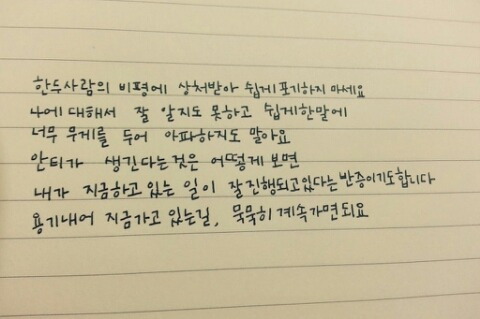 한두사람의 비평에 상처받아 쉽게포기하지 마세요
나에 대해서 잘 알지도 못하고 쉽게한말에
너무 무게를 두어 아파하지도 말아요
안티가 생긴다는것은 어떻게 보면
내가 지금하고 있는 일이 잘진행되고있다는 반증이기도합니다
용기내어 지금가고 있는길, 묵묵히 계속가면되요